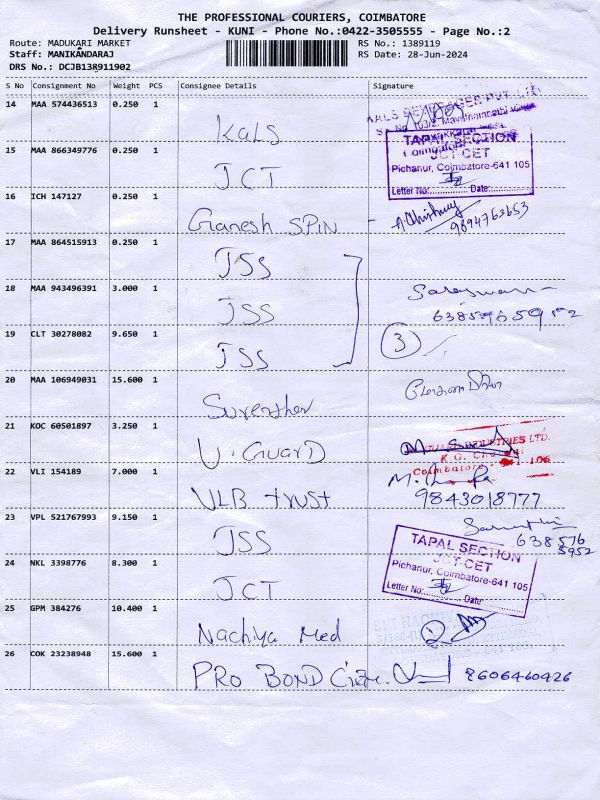 THE PROFESSIONAL COURIERS, COIMBATORE
Delivery Runsheet - KUNI - Phone No.:0422-3505555 - Page No.:2
Route: MADUKARI MARKET RS No.: 1389119
Staff: MANIKANDARAJ RS Date: 28-Jun-2024
DRS No.: DCJB13R911902
S No Consignment No Weight PCS Consignee Details Signature
14 MAA 574436513 0.250 1 KALS
15 MAA 866349776 0.250 1 JCT
TAPAL SECTION
JCT-CET
Pichanur, Coimbatore-641 105
Letter No:............ Date:............
16 ICH 147127 0.250 1 Ganesh SPIN
9894763653
17 MAA 864515913 0.250 1 JSS
18 MAA 943496391 3.000 1 JSS
19 CLT 30278082 9.650 1 JSS 3
20 MAA 106949031 15.600 1 Surenther
21 KOC 60501897 3.250 1 U. GUARD
22 VLI 154189 7.000 1 VLB trust 9843018777
23 VPL 521767993 9.150 1 JSS 638576
5952
24 NKL 3398776 8.300 1 JCT
TAPAL SECTION
JCT-CET
Pichanur, Coimbatore-641 105
Letter No:............ Date:............
25 GPM 384276 10.400 1 Nachiya Med
26 COK 23238948 15.600 1 PRO BOND 8606460426